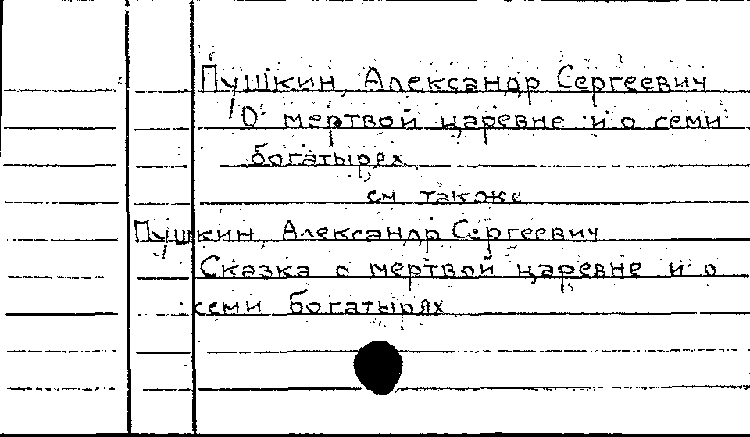 Пушкин, Александр Сергеевич
О мертвой царевне и о семи
богатырях
см также
Пушкин, Александр Сергеевич
Сказка о мертвой царевне и о
семи богатырях